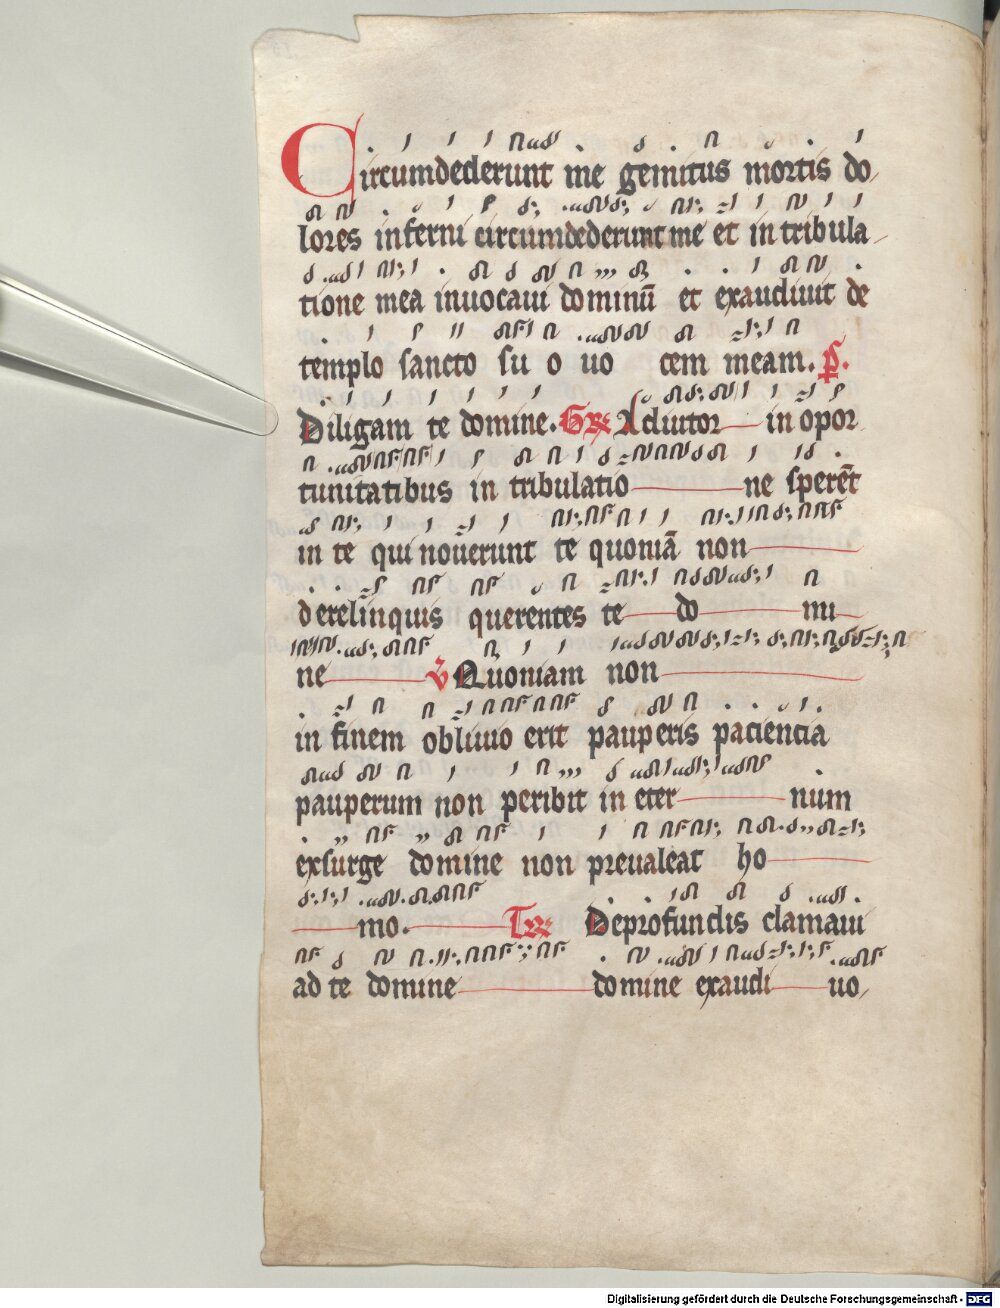 Circumdederunt me gemitus mortis do
lores inferni circumdederunt me et in tribula
tione mea inuocaui dominū et exaudiuit de
templo sancto su o uo cem meam. ps.
Diligam te domine. Gr Adiutor in opor
tunitatibus in tribulatio ne sperēt
in te qui nouerunt te quoniā non
derelinquis querentes te do mi
ne V Quoniam non
in finem obliuio erit pauperis paciencia
pauperum non peribit in eter num
exsurge domine non preualeat ho
mo. Tr Deprofundis clamaui
ad te domine domine exaudi uo
Digitalisierung gefördert durch die Deutsche Forschungsgemeinschaft - DFG